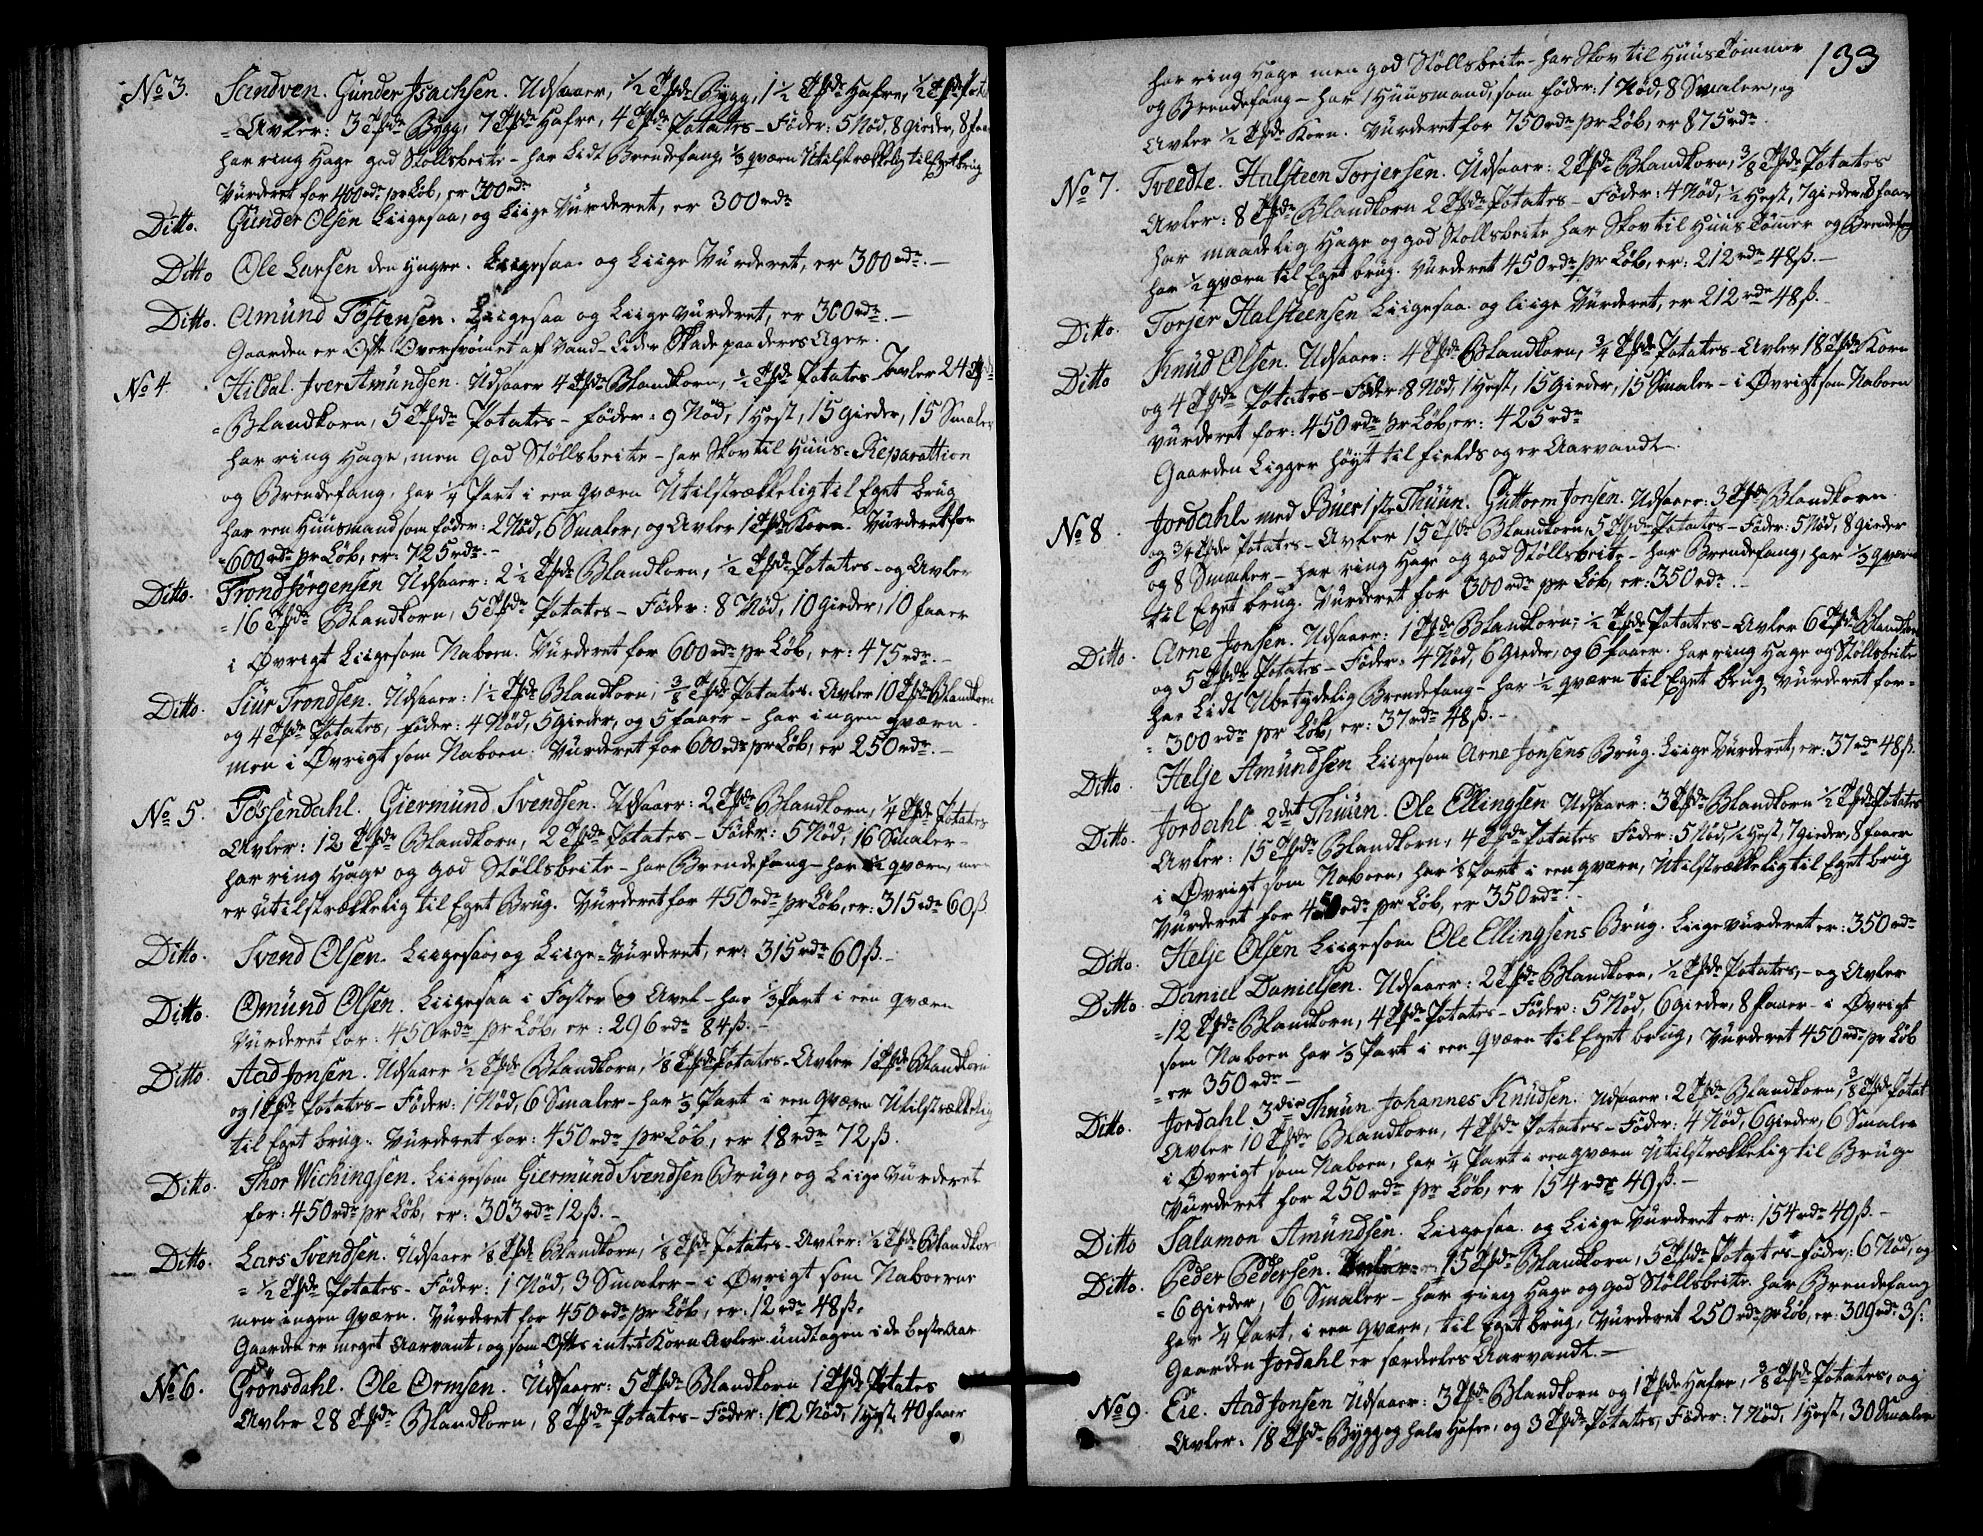 No 3. Sandven. Günder Isachsen. Udsaaer, 1/2 Tde Bygg, 1 1/2 Tde Hafre, 1/2 Tde Potat
Avler: 3 Tdr Bygg, 7 Tdr Hafre, 4 Tdr Potates - Föder: 5 Nöd, 8 gieder, 8 faar
har ring Hage god Stöllsbeite - har Lidt Brendefang 1/3 qværn Utilstrækkelig til Eget brug
Vürderet for 400 rdr pr Löb, er 300 rdr
Ditto. Günder Olsen Liigesaa, og Liige Vürderet, er 300 rdr
Ditto Ole Larsen den yngre. Liigesaa og Liige Vürderet, er 300 rdr. -
Ditto. Amünd Tostensen. Liigesaa og Liige vürderet, er 300 rdr. -
Gaarden er Ofte Oversvömet af Vand - Lider Skade paa deres Ager.
No 4. Hildal. Iver Amündsen. Udsaaer 4 Tdr Blandkorn, 1/2 Tde Potates - Avler 24 Tdr
Blandkorn, 5 Tdr Potates - föder: 9 Nöd, 1 Hest, 15 gieder, 15 Smaler
har ring Hage, men God Stöllsbeite - har Skov til Huus-Reparattion
og Brendefang, har 1/4 Part i een qværn Utilstrækkelig til Eget brug
har een Huusmand som föder: 2 Nöd, 6 Smaler, og Avler 1 Tde Korn. Vürderet for
600 rdr pr Löb, er: 725 rdr. -
Ditto. Trond Jörgensen Udsaaer: 2 1/2 Tde Blandkorn, 1/2 Tde Potates - og Avler
16 Tdr Blandkorn, 5 Tdr Potates - Föder: 8 Nöd, 10 gieder, 10 faaer
i Övrigt Liigesom Naboen. Vürderet for 600 rdr pr Löb, er: 475 rdr. -
Ditto. Siur Trondsen. Udsaaer: 1 1/2 Tde Blandkorn, 3/8 Tde Potates. Avler 10 Tdr Blandkorn
og 4 Tdr Potates, föder: 4 Nöd, 5 gieder, og 5 faaer - har ingen qværn.
men i Övrigt som Naboen. Vürderet for 600 rdr pr Löb, er 250 rdr. -
No 5. Tössendahl. Giermünd Svendsen. Udsaaer: 2 Tdr Blandkorn, 1/4 Tde Potates
Avler: 12 Tdr Blandkorn, 2 Tdr Potates - Föder: 5 Nöd, 16 Smaler -
har ring Hage og god Stöllsbeite - har Brendefang - har 1/2 qværn, men
er utilstrækkelig til Eget Brug. Vürderet for 450 rdr pr Löb, er: 315 rdr 60 ß.
Ditto. Svend Olsen. Liigesaa, og Liige-Vürderet, er: 315 rdr 60 ß. -
Ditto. Omünd Olsen. Liigesaa i Foster og Avel - har 1/3 Part i een qværn
Vürderet for: 450 rdr pr Löb, er: 296 rdr 84 ß. -
Ditto. Aad Jonsen. Udsaaer 1/2 Tde Blandkorn, 1/8 Tde Potates - Avler 1 Tde Blandkorn
og 1 Tde Potates - Föder: 1 Nöd, 6 Smaler - har 1/3 Part i een qværn Utilstrækkelig
til Eget brug. Vürderet for: 450 rdr pr Löb, er 18 rdr 72 ß.
Ditto. Thor Wichingsen. Liigesom Giermünd Svendsen Brug, og Liige Vürderet
for: 450 rdr pr Löb, er: 303 rdr 12 ß. -
Ditto. Lars Svendsen. Udsaaer 1/8 Tde Blandkorn, 1/8 Tde Potates - Avler: 1/2 Tde Blandkor
1/2 Tde Potates - Föder: 1 Nöd, 3 Smaler - i Övrigt som Naboerne
men ingen qværn. Vürderet for 450 rdr pr Löb, er: 12 rdr 48 ß.
Gaarden er meget Aarvant, og som Ofte intet Korn Avler undtagen i de beste Aar
No 6. Grönsdahl. Ole Ormsen. Udsaaer: 5 Tdr Blandkorn 1 Tde Potates
Avler 28 Tdr Blandkorn, 8 Tdr Potates - Föder: 12 Nöd, 1 Hest, 40 faaer
133
har ring Hage men god Stöllsbeite - har Skov til Huus Tömmer
og Brendefang - har 1 Huusmand, som föder: 1 Nöd, 8 Smaler, og
Avler 1/2 Tde Korn. Vürderet for 750 rdr pr Löb, er 875 rdr.
No 7. Tvedte. Halsteen Torjersen. Udsaaer: 2 Tdr Blandkorn, 3/8 Tde Potates
Avler: 8 Tdr Blandkorn 2 Tdr Potates - Föder: 4 Nöd, 1/2 Hest, 7 gieder, 8 faar
har maadelig Hage og god Stöllsbeite har Skov til Huus Tömer og Brendefang
har 1/2 qværn til Eget brug. Vürderet 450 rdr pr Löb, er: 212 rdr 48 ß. -
Ditto. Torjer Halsteensen Liigesaa og liige Vürderet, er 212 rdr 48 ß. -
Ditto Knüd Olsen. Udsaaer: 4 Tdr Blandkorn, 3/4 Tde Potates - Avler 18 Tdr Korn
og 4 Tdr Potates - Föder 8 Nöd, 1 Hest, 15 gieder, 15 Smaler - i Övrigt som Naboen
vürderet for: 450 rdr pr Löb, er: 425 rdr
Gaarden Ligger höyt til fields og er Aarvandt.
No 8. Jordahl med Buer 1ste Thüün. Güttorm Jonsen. Udsaaer: 3 Tdr Blandkorn
og 3/4 Tde Potates - Avler 15 Tdr Blandkorn, 5 Tdr Potates - Föder: 5 Nöd, 8 gieder
og 8 Smaler - har ring Hage og god Stöllsbeite - har Brendefang, har 1/3 qværn
til Eget brug. Vürderet for 300 rdr pr Löb, er: 350 rdr. -
Ditto. Arne Jonsen. Udsaaer: 1 Tde Blandkorn, 1/2 Tde Potates - Avler 6 Tdr Blandkor
og 5 Tdr Potates - Föder: 4 Nöd, 6 gieder, og 6 faaer. har ring Hage og Stöllsbeite
har Lidt Ubetydelig Brendefang - har 1/2 qværn til Eget brug vürderet for -
300 rdr pr Löb, er: 37 rdr 48 ß. -
Ditto. Helje Amündsen Liigesom Arne Jonsens Brug. Liige Vürderet, er: 37 rdr 48 ß.
Ditto. Jordahl 2det Thüün. Ole Ellingsen Udsaaer: 3 Tdr Blandkorn 1/2 Tde Potates
Avler: 15 Tdr Blandkorn, 4 Tdr Potates Föder: 5 Nöd, 1/2 Hest, 7 gieder, 8 faaer
i Övrigt som Naboen, har 1/8 Part i een qværn, Utilstrækkelig til Eget brug
Vürderet for 450 rdr pr Löb, er 350 rdr. -
Ditto. Helje Olsen Liigesom Ole Ellingsens Brug. Liige vürderet er: 350 rdr
Ditto. Daniel Danielsen. Udsaaer: 2 Tdr Blandkorn, 1/2 Tde Potates, - og Avler
12 Tdr Blandkorn, 4 Tdr Potates - Föder: 5 Nöd, 6 gieder, 8 faaer - i Övrigt
som Naboen har 1/3 Part i een qværn til Eget brug, Vürderet 450 rdr pr Löb
er 350 rdr -
Ditto. Jordahl 3die Thüün Johannes Knüdsen. Udsaaer: 2 Tdr Blandkorn, 3/8 Tde Potat
Avler 10 Tdr Blandkorn, 4 Tdr Potates - Föder: 4 Nöd, 6 gieder, 6 Smaler
i Övrigt som Naboen, har 1/4 Part i een qværn Utilstrækkelig til Bruge
Vürderet for 250 rdr pr Löb, er 154 rdr 49 ß. -
Ditto Salamon Amündsen. Liigesaa og Liige Vürderet er: 154 rdr 49 ß. -
Ditto. Peder Pedersen. 15 Tdr Blandkorn, 5 Tdr Potates - föder: 6 Nöd, og
6 gieder, 6 Smaler - har ring Hage og god Stöllsbeite har Brendefang
har 1/4 Part, i een qværn, til Eget brug, Vürderet 250 rdr pr Löb, er: 309 rdr 3 ß:
Gaarden Jordahl er særdeeles Aarvandt. -
No 9. Eie. Aad Jonsen Udsaaer: 3 Tdr Blandkorn og 1 Tde Hafre, 3/8 Tde Potates, og
Avler: 18 Tdr Bygg og halv Hafre, og 3 Tdr Potates, Föder: 7 Nöd, 1 Hest, 30 Smaler